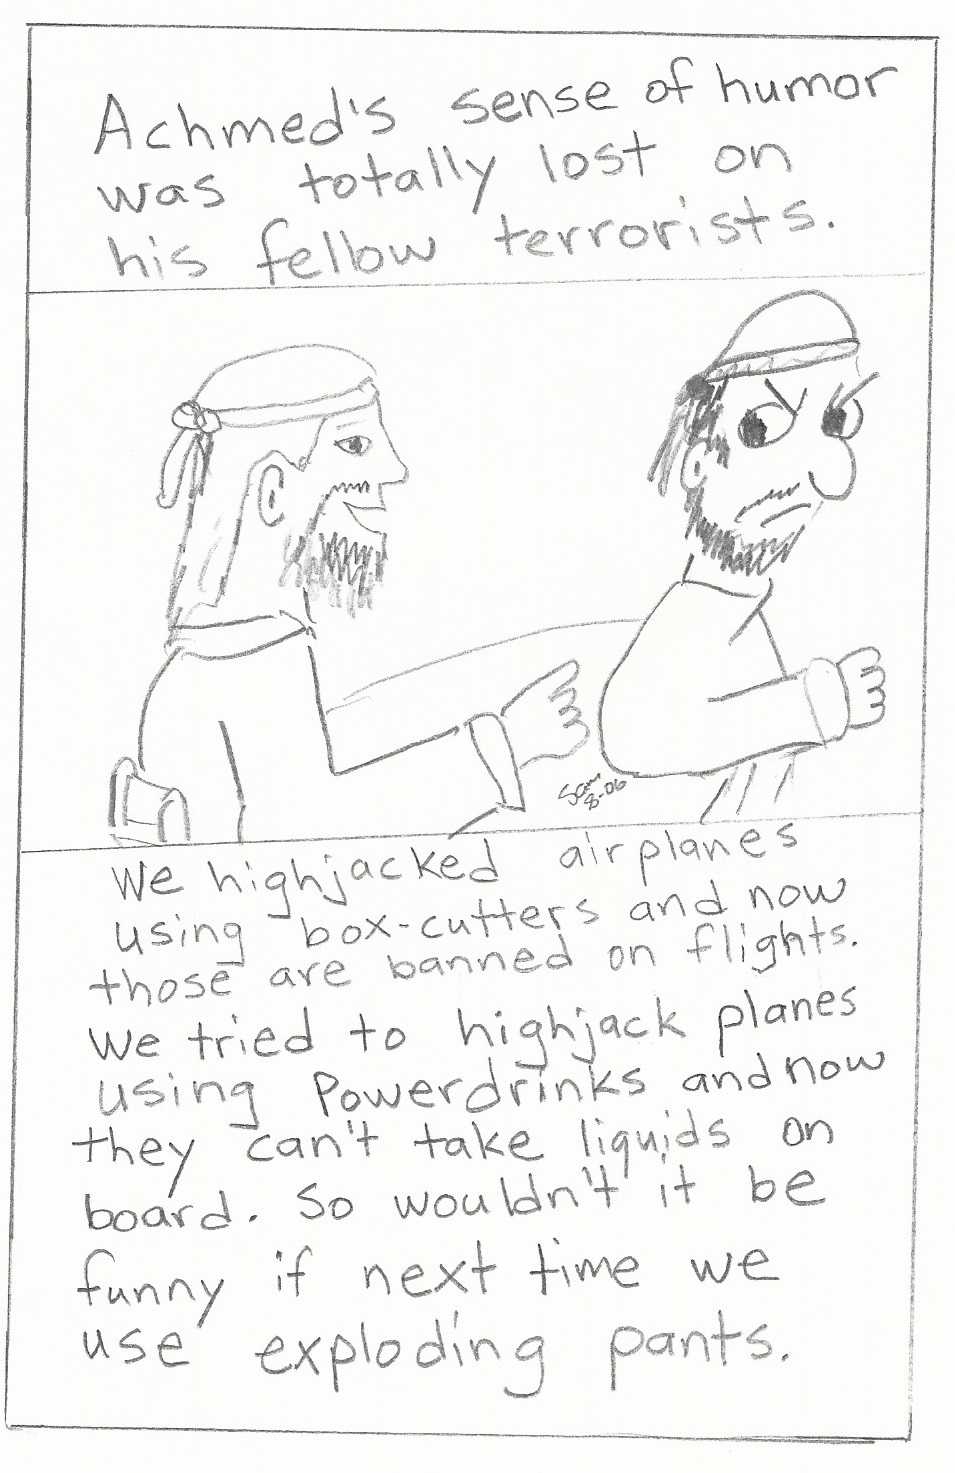 Achmed's sense of humor
was totally lost on
his fellow terrorists.
Sam
8-06
We highjacked airplanes
using box-cutters and now
those are banned on flights.
We tried to highjack planes
using Powerdrinks and now
they can't take liquids on
board. So wouldn't it be
funny if next time we
use exploding pants.